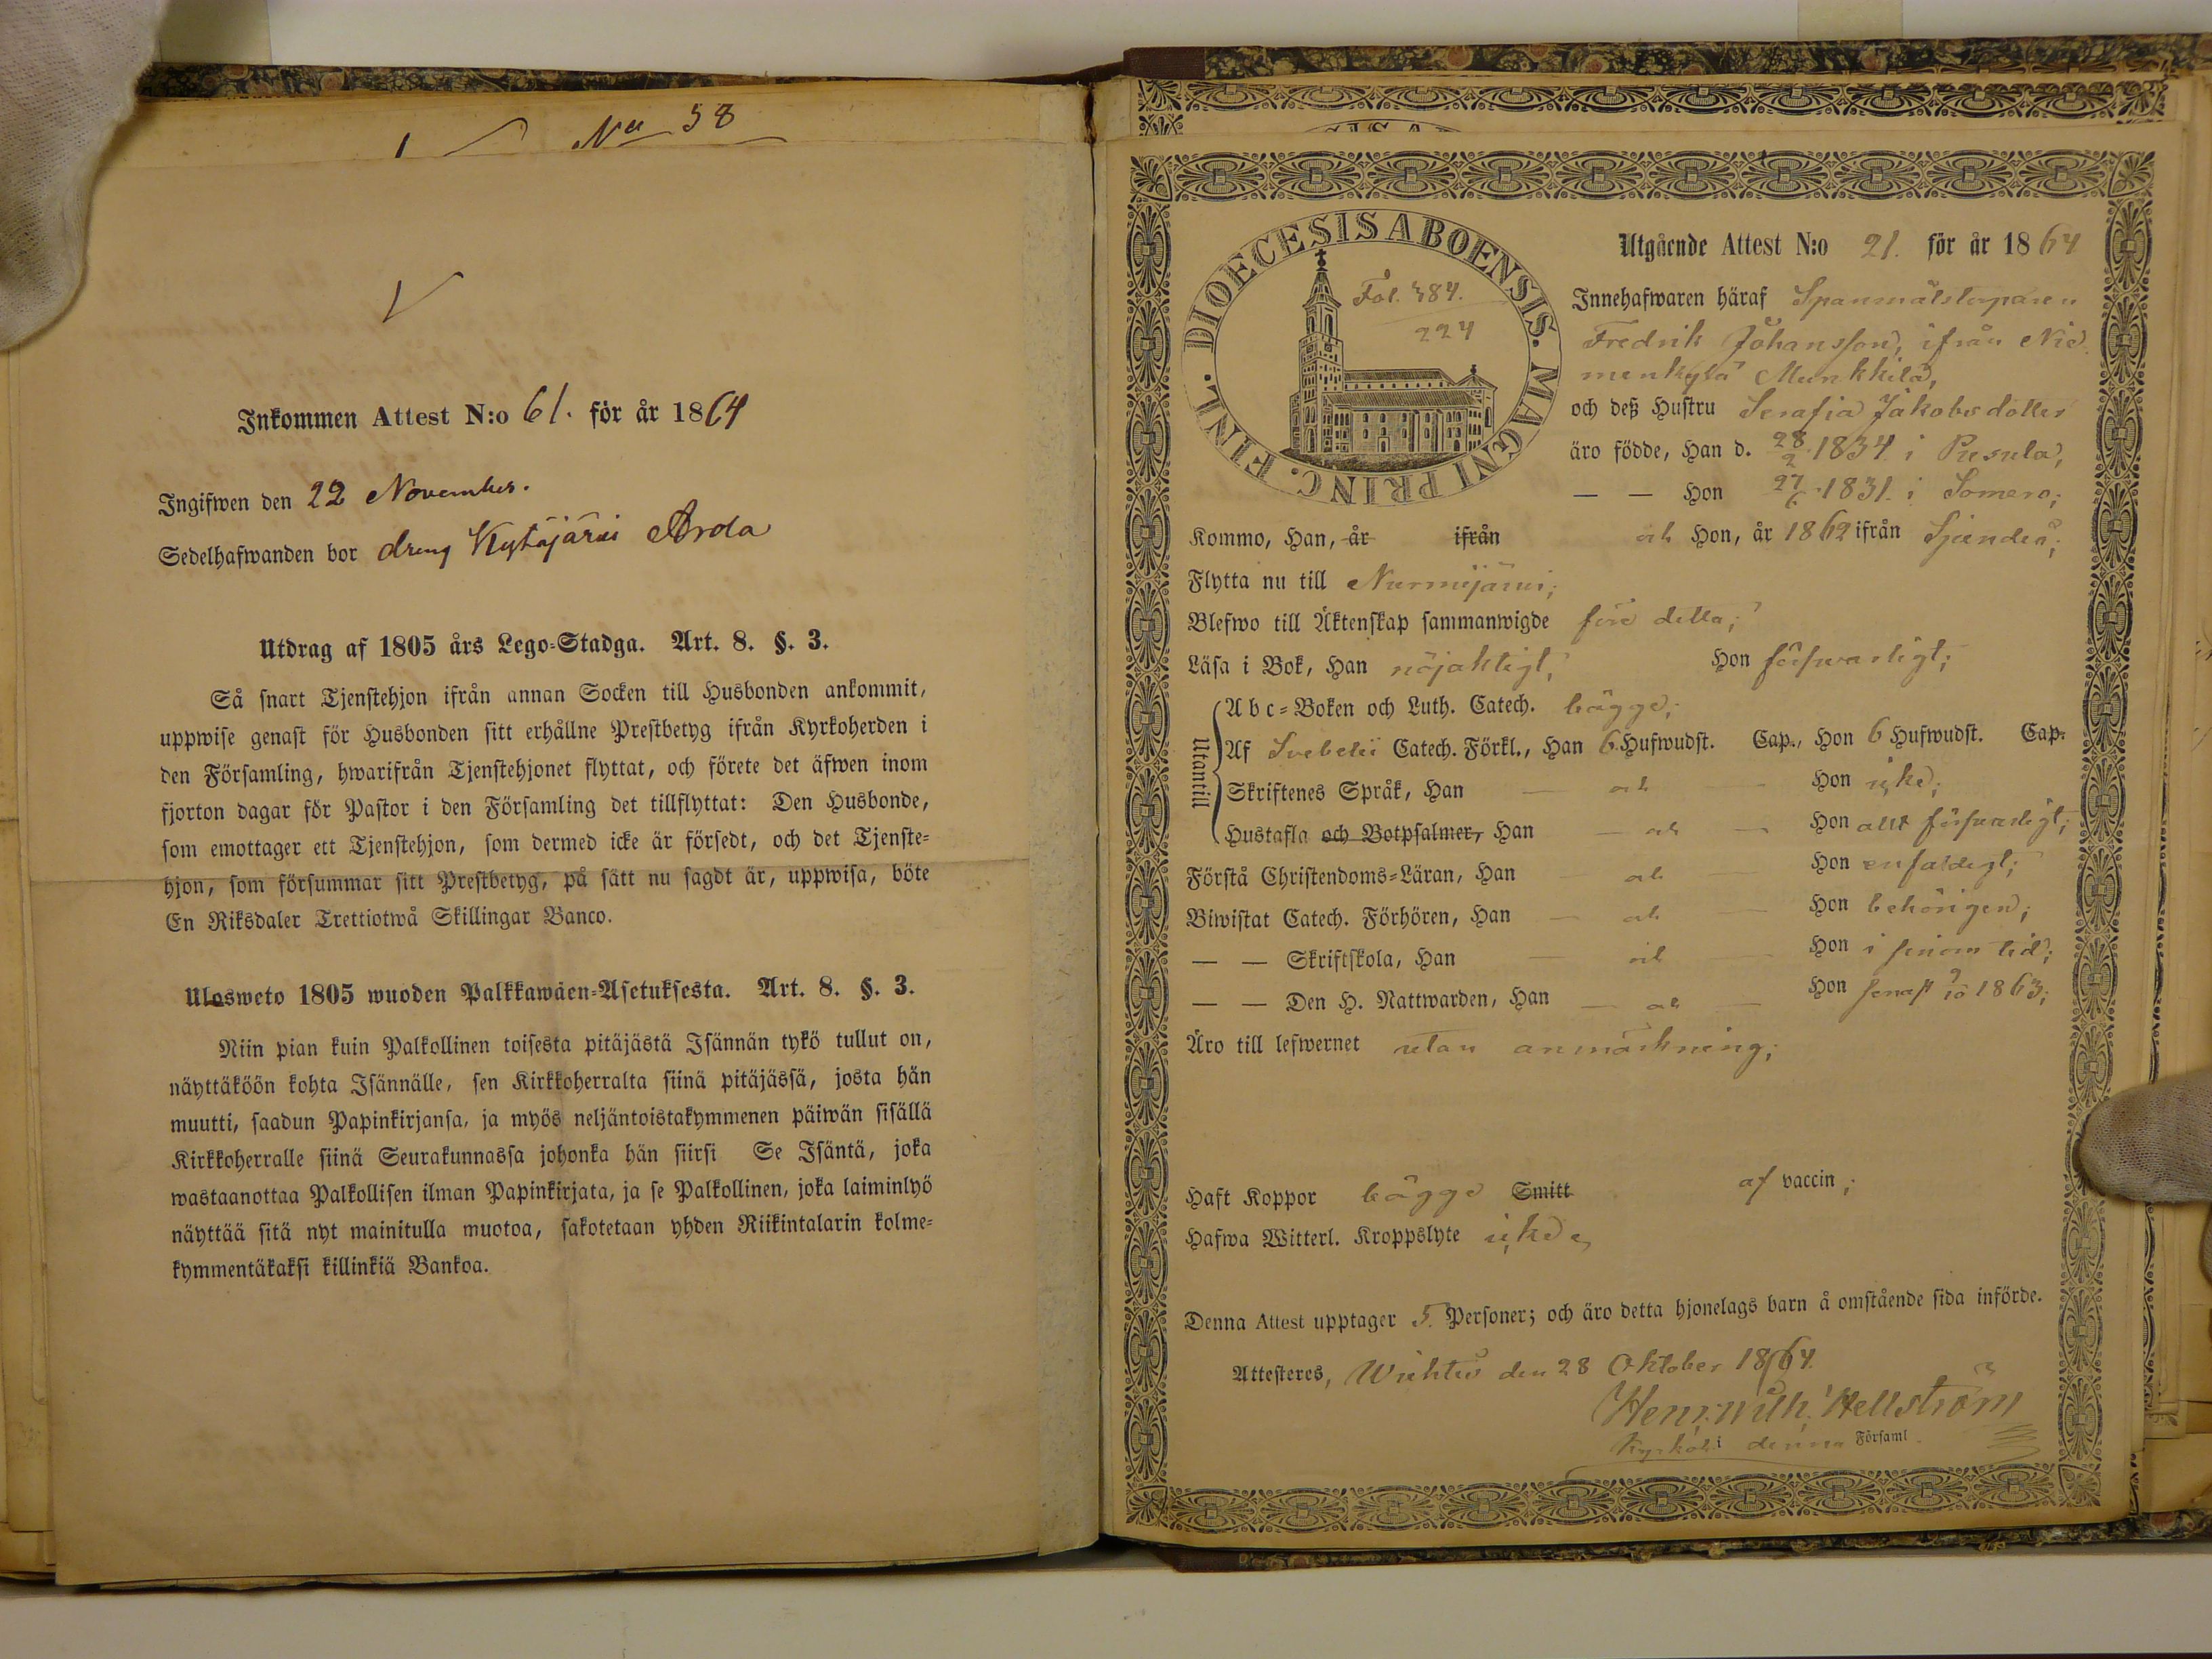 No 58
Inkommen Attest N:o 61. för år 1864
Ingifwen den 22 November.
Sedelhafwanden bor dreng Kytäjärvi Arola
Utdrag af 1805 års Lego-Stadga. Art. 8. §. 3.
Så snart Tjenstehjon ifrån annan Socken till Husbonden ankommit,
uppwise genast för Husbonden sitt erhållne Prestbetyg ifrån Kyrkoherden i
den Församling, hwarifrån Tjenstehjonet flyttat, och förete det äfwen inom
fjorton dagar för Pastor i den Församling det tillflyttat: Den Husbonde,
som emottager ett Tjenstehjon, som dermed icke är försedt, och det Tjenste-
hjon, som försummar sitt Prestbetyg, på sätt nu sagdt är, uppwisa, böte
En Riksdaler Trettiotwå Skillingar Banco.
Ulosweto 1805 wuoden Palkkawäen-Asetuksesta. Art. 8. §. 3.
Niin pian kuin Palkollinen toisesta pitäjästä Isännän tykö tullut on,
näyttäköön kohta Isännälle, sen Kirkkoherralta siinä pitäjässä, josta hän
muutti, saadun Papinkirjansa, ja myös neljäntoistakymmenen päiwän sisällä
Kirkkoherralle siinä Seurakunnassa johonka hän siirsi Se Isäntä, joka
wastaanottaa Palkollisen ilman Papinkirjata, ja se Palkollinen, joka laiminlyö
näyttää sitä nyt mainitulla muotoa, sakotetaan yhden Riikintalarin kolme-
kymmentäkaksi killinkiä Bankoa.
DIOECESIS ABOENSIS. MAGNI PRINC. FINL.
Fol. 484.
224
Utgående Attest N:o 21. för år 1864
Innehafwaren häraf Spanmålstorparen
Fredrik Johansson, ifrån Nie
menkylä Munkkila,
och deß Hustru Serafia Jakobsdotter
äro födde, Han d. 28/2 1834 i Pusula,
— — Hon 27/6 1831. i Somero;
Kommo, Han, år ifrån och Hon, år 1862 ifrån Sjundeå;
Flytta nu till Nurmijärvi;
Blefwo till Äktenskap sammanwigde före detta;
Läsa i Bok, Han nöjaktigt, Hon försvarligt;
Utantill
Abc-Boken och Luth. Catech. bägge;
Af Svebelii Catech. Förkl., Han 6 Hufwudst. Cap., Hon 6 Hufwudst. Cap.
Skriftenes Språk, Han — och — Hon icke;
Hustafla och Botpsalmer, Han — och — Hon allt försvarligt;
Förstå Christendoms-Läran, Han — och — Hon enfaldigt;
Biwistat Catech. Förhören, Han — och — Hon behörigen;
— — Skriftskola, Han — och — Hon i sinom tid;
— — Den H. Nattwarden, Han — och — Hon senast 1863;
Äro till lefwernet utan anmärkning;
Haft Koppor bägge Smitt af vaccin;
Hafwa Witterl. Kroppslyte icke
Denna Attest upptager 5. Personer; och äro detta hjonelags barn å omstående sida införde.
Attesteres, Wichtis den 28 Oktober 1864.
Henr. Wilh. Hellström
Kyrkoh. i denna Församl.